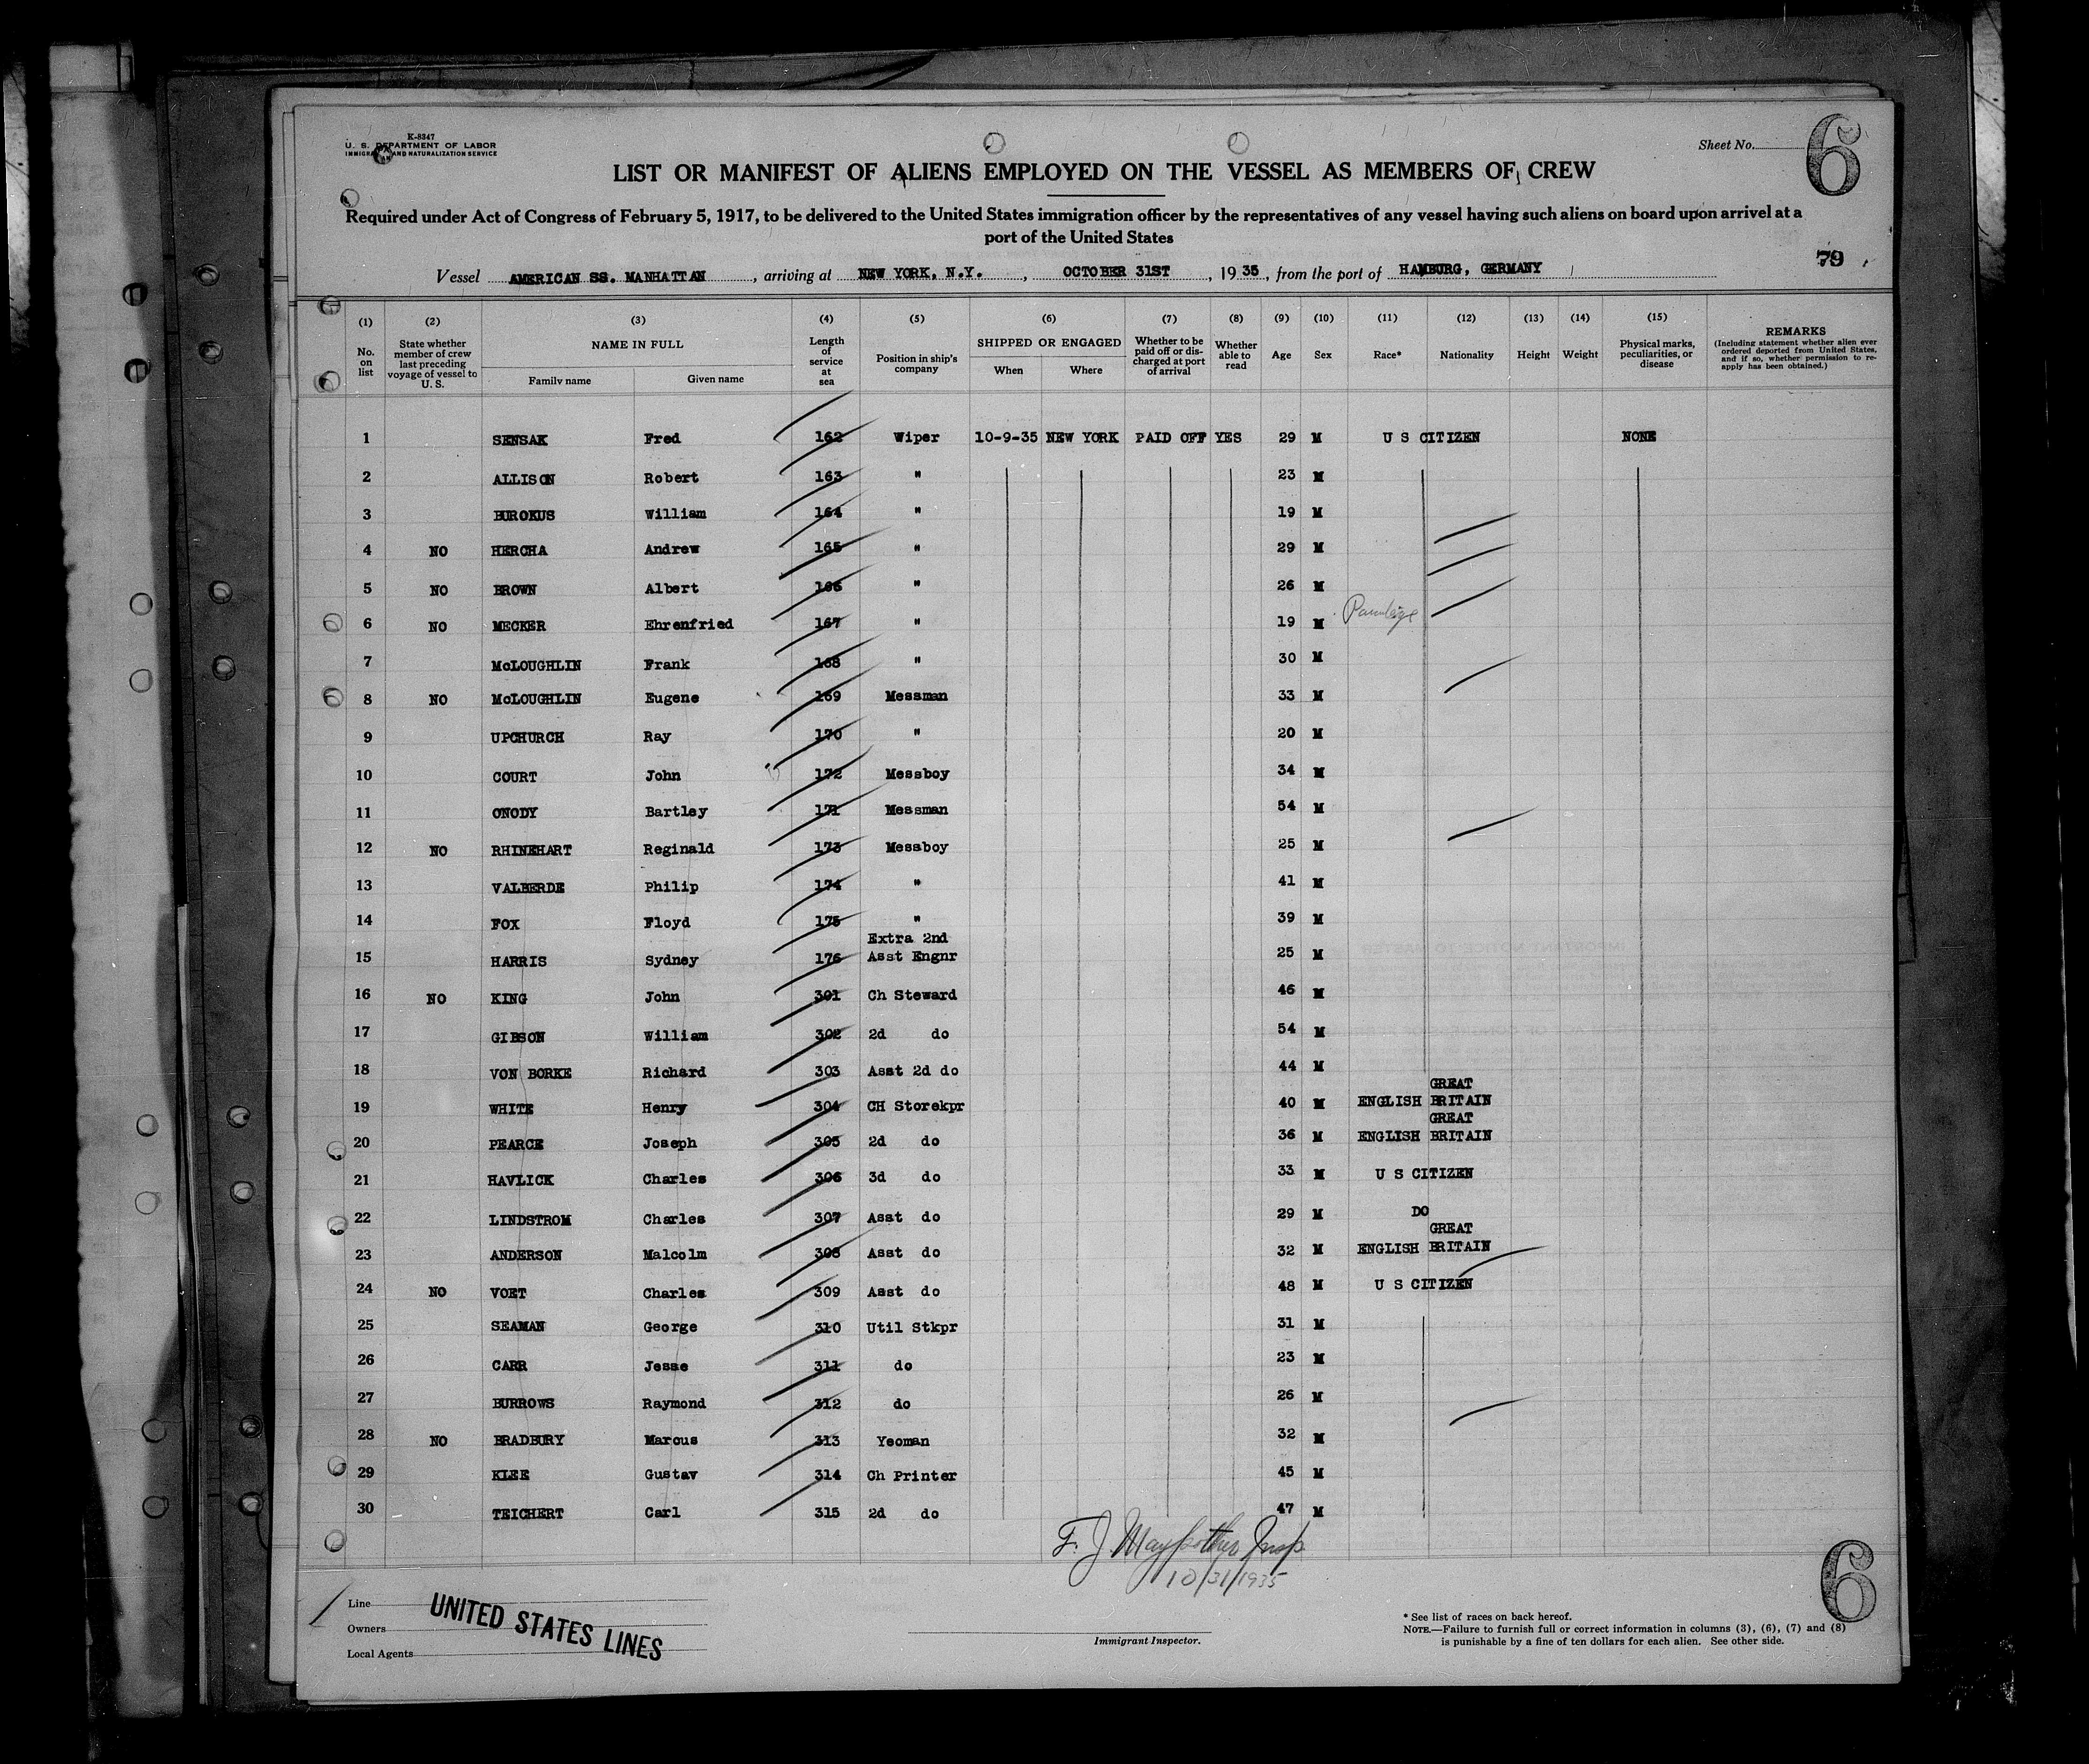 K-8347
U. S. DEPARTMENT OF LABOR
IMMIGRATION AND NATURALIZATION SERVICE
Sheet No. 6
LIST OR MANIFEST OF ALIENS EMPLOYED ON THE VESSEL AS MEMBERS OF CREW
Required under Act of Congress of February 5, 1917, to be delivered to the United States immigration officer by the representatives of any vessel having such aliens on board upon arrival at a
port of the United States
79
Vessel AMERICAN SS. MANHATTAN, arriving at NEW YORK, N.Y., OCTOBER 31ST, 1935, from the port of HAMBURG, GERMANY
(1) No. on list
(2) State whether member of crew last preceding voyage of vessel to U. S.
(3) NAME IN FULL Family name Given name
(4) Length of service at sea
(5) Position in ship's company
(6) SHIPPED OR ENGAGED When Where
(7) Whether to be paid off or discharged at port of arrival
(8) Whether able to read
(9) Age
(10) Sex
(11) Race*
(12) Nationality
(13) Height
(14) Weight
(15) Physical marks, peculiarities, or disease
REMARKS (Including statement whether alien ever ordered deported from United States, and if so, whether permission to reapply has been obtained.)
1 SENSAK Fred 162 Wiper 10-9-35 NEW YORK PAID OFF YES 29 M U S CITIZEN NONE
2 ALLISON Robert 163 " 23 M
3 BUROKUS William 164 " 19 M
4 NO HERCHA Andrew 165 " 29 M
5 NO BROWN Albert 166 " 26 M
6 NO MECKER Ehrenfried 167 " 19 M
7 McLOUGHLIN Frank 168 " 30 M
8 NO McLOUGHLIN Eugene 169 Messman 33 M
9 UPCHURCH Ray 170 " 20 M
10 COURT John 172 Messboy 34 M
11 ONODY Bartley 171 Messman 54 M
12 NO RHINEHART Reginald 173 Messboy 25 M
13 VALBERDE Philip 174 " 41 M
14 FOX Floyd 175 " 39 M
15 HARRIS Sydney 176 Extra 2nd Asst Engnr 25 M
16 NO KING John 301 Ch Steward 46 M
17 GIBSON William 302 2d do 54 M
18 VON BORKE Richard 303 Asst 2d do 44 M
19 WHITE Henry 304 CH Storekpr 40 M ENGLISH GREAT BRITAIN
20 PEARCE Joseph 305 2d do 36 M ENGLISH GREAT BRITAIN
21 HAVLICK Charles 306 3d do 33 M U S CITIZEN
22 LINDSTROM Charles 307 Asst do 29 M DO
23 ANDERSON Malcolm 308 Asst do 32 M ENGLISH GREAT BRITAIN
24 NO VOET Charles 309 Asst do 48 M U S CITIZEN
25 SEAMAN George 310 Util Stkpr 31 M
26 CARR Jesse 311 do 23 M
27 BURROWS Raymond 312 do 26 M
28 NO BRADBURY Marcus 313 Yeoman 32 M
29 KLEE Gustav 314 Ch Printer 45 M
30 TEICHERT Carl 315 2d do 47 M
F. J. Insp
10/31/1935
Line
Owners
Local Agents
UNITED STATES LINES
Immigrant Inspector.
* See list of races on back hereof.
NOTE.—Failure to furnish full or correct information in columns (3), (6), (7) and (8)
is punishable by a fine of ten dollars for each alien. See other side.
6